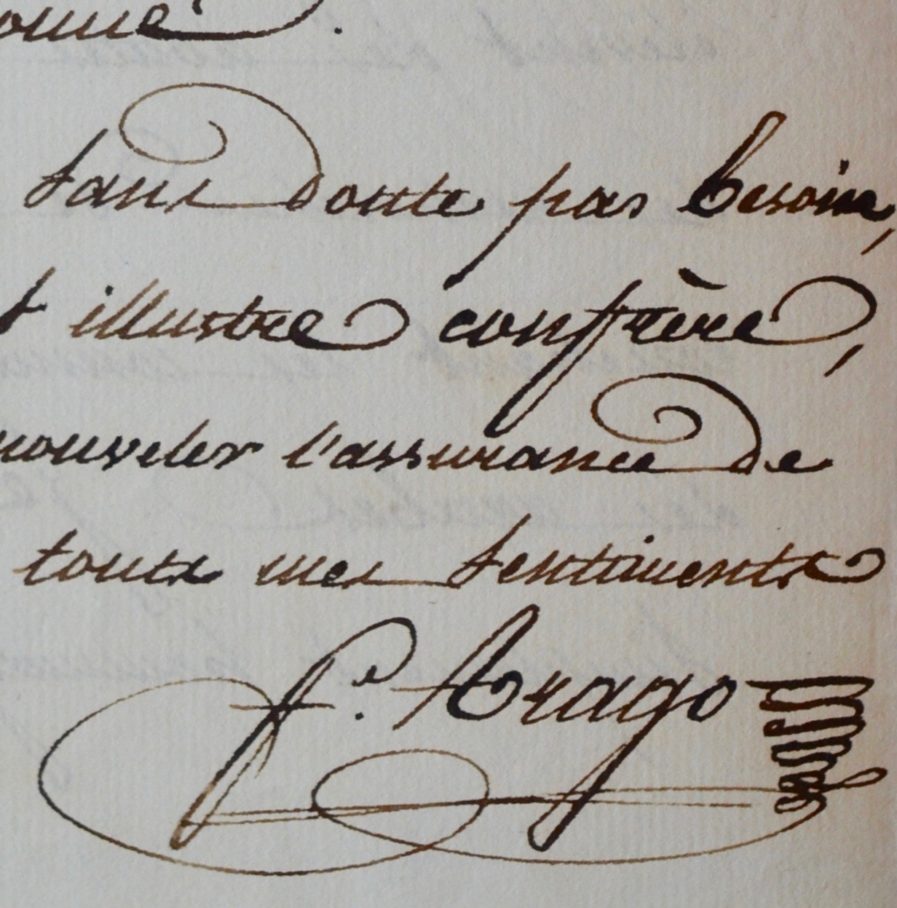 onne.
sans doute pas besoin,
t illustre confrère,
nouveler l'assurance de
touts mes sentiments
f.s Arago